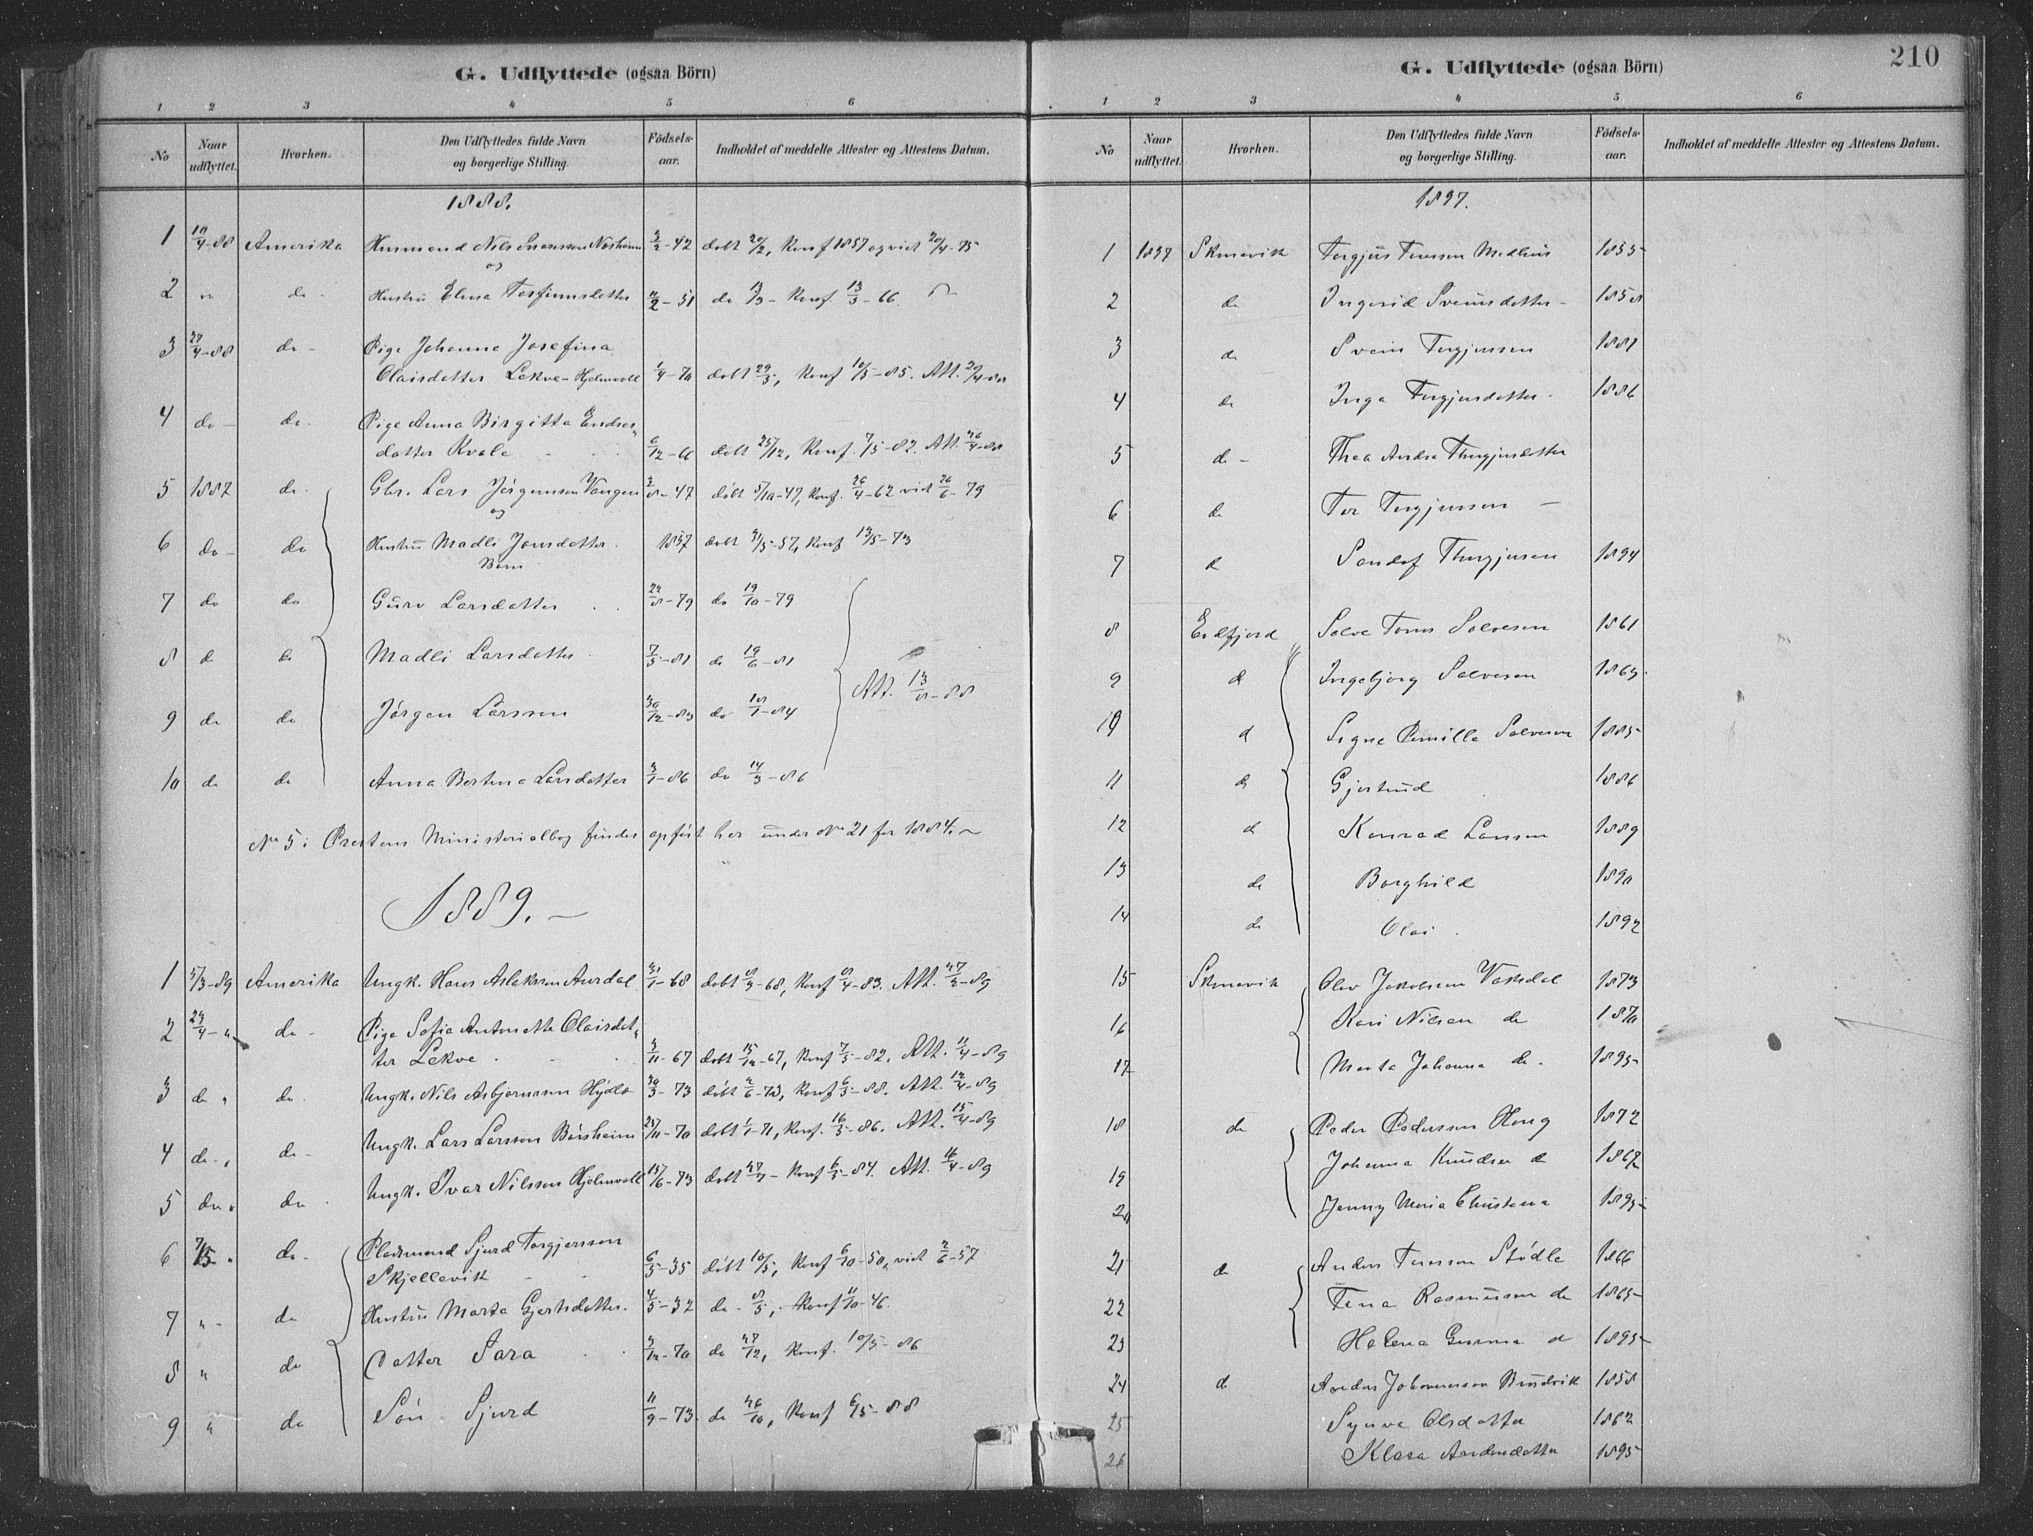 G. Udflyttede (ogsaa Börn)
1 2 3 4 5 6
No Naar udflyttet. Hvorhen. Den Udflyttedes fulde Navn og borgerlige Stilling. Födsels-aar. Indholdet af meddelte Attester og Attestens Datum.
1888.
1 10/4-88 Amerika Husmand Nils 3/2-42 døbt 20/2, Konf 1857 og viet 20/4-75
og
2 " do - Hustru Elena Torfinnsdotter 11/2-51 do 13/3- Konf 13/5-66
3 27/4-88 do - Pige Johanna Josefina
Olaisdotter Lekve-Hjelmvoll 1/4-70 døbt 29/5, Konf 10/5-85. Att. 20/4-88
4 do - do. Pige Anna Birgitta Endres-
dotter Kvale 6/12-66 døbt 25/12, Konf. 7/5-82. Att. 26/4-88
5 1887 do - Gbr. Lars Jørgensen Vangen 2/8-47 døbt 5/10-47, Konf. 26/4-62 viet 26/6-79
og
6 do - do Hustru Madli Jonsdotter. 1857 døbt 31/5-57, Konf 18/5-73
Børn
7 do do Guro Larsdotter 24/8-79 do 19/10-79
8 do do Madli Larsdotter 7/5-81 do 19/6-81
Att. 13/8-88
9 do do Jørgen Larssen 30/12-83 do 10/1-84
10 do do Anna Bertina Larsdotter 3/1-86 do 14/3-86
No 5 i Prestens Ministerialbog findes opført her under No 21 for 1884.
1889.
1 5/3-89 Amerika Ungk. Hans Aslaksson Aurdal 31/1-68 døbt 8/3-68, Konf 8/4-83. Att. 27/2-89
2 24/4-" do - Pige Sofia Antonette Olaisdot-
ter Lekve 3/11-67 døbt 15/12-67, Konf 7/5-82, Att. 11/4-89
3 do " do. Ungk. Nils Asbjørnsson Hydle 30/3-73 døbt 2/6-73, Konf 6/5-88. Att. 12/4-89
4 do " do - Ungk. Lars Larsson Børsheim 25/11-70 døbt 1/1-71, Konf. 16/5-86. Att. 15/4-89
5 do " do Ungk. Ivar Nilsson Hjelmvoll 15/6-73 døbt 27/7- Konf 6/5-87. Att. 16/4-89
6 7/5 " do - Pladsmand Sjurd Torgjersson
Skjellevik 6/5-35 døbt 10/5, Konf 6/10-50, viet 2/6-57
7 " - do Hustru Marta Gjertsdotter. 4/5-32 do - 8/5, - Konf 11/10-46
8 " do Dotter Sara 3/12-70 do 27/12, Konf. 10/5-86
9 " do Søn Sjurd 11/9-73 do 26/10, Konf 6/5-88
210
G. Udflyttede (ogsaa Börn)
1 2 3 4 5 6
No Naar udflyttet. Hvorhen. Den Udflyttedes fulde Navn og borgerlige Stilling. Födsels-aar. Indholdet af meddelte Attester og Attestens Datum.
1897.
1 1897 Skonevik Torgjus Torsson Medhus 1855
2 do Ingerid Sveinsdotter - 1858
3 do Svein Torgjussen 1881
4 do Inga Torgjusdotter - 1886
5 do - Thea Andrea Thorgjusdotter
6 do Tor Torgjusson -
7 do Sondof Thorgjusen 1894
8 Erlfjord Salve Torus Salvesen 1861
9 do Ingebjørg Salvesen 1863
10 do Signe Pernille Salvesen 1885
11 do Gjertrud 1886
12 do Konrad Larsson 1889
13 do Borghild 1890
14 do Olai 1892
15 Skonevik Olav Jakobsen Vaksdal 1873
16 Kari Nilsen do 1870
17 Marta Johanna do. 1895
18 do Peder Pederssen Haug 1872
19 Johanna Knudsen do 1867
20 Jenny Maria Christena 1895
21 do Anders Torsson Stødle 1866
22 Tena Rasmussen do 1865
23 Helena Gurina do 1895
24 do Anders Johannessen Bundvik 1858
25 Synva Olsdotter 1862
26 Klara Andersdotter 1895